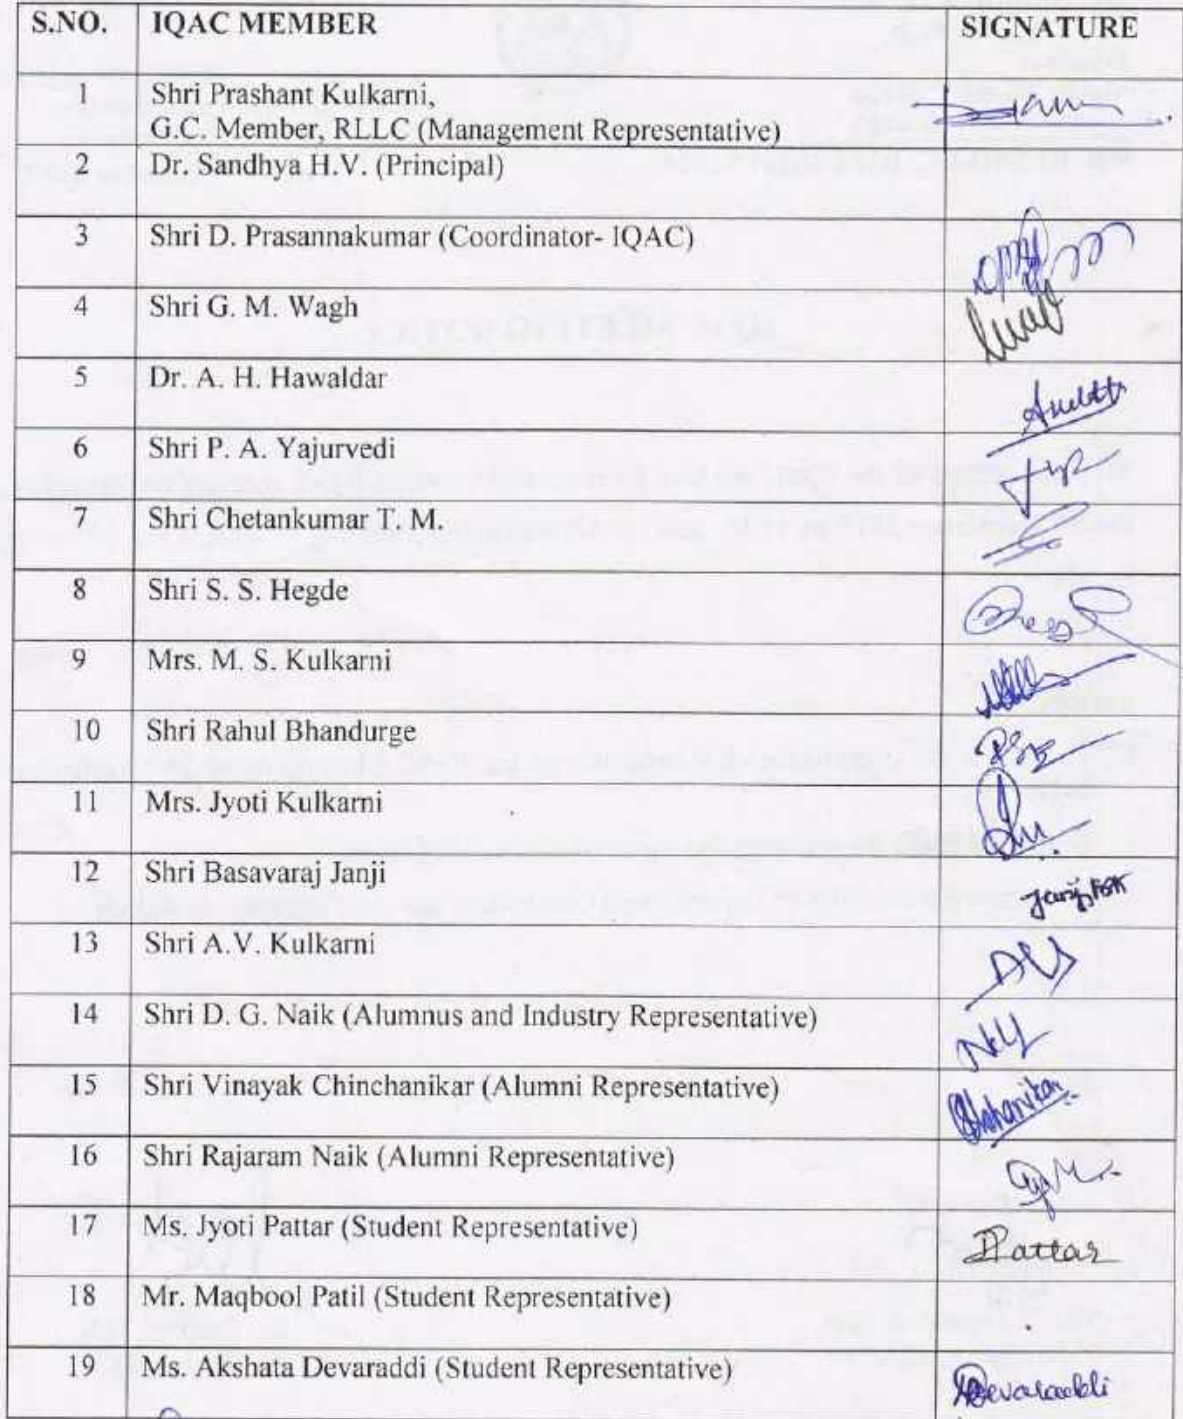 S.NO. IQAC MEMBER SIGNATURE
1 Shri Prashant Kulkarni,
G.C. Member, RLLC (Management Representative)
2 Dr. Sandhya H.V. (Principal)
3 Shri D. Prasannakumar (Coordinator- IQAC)
4 Shri G. M. Wagh
5 Dr. A. H. Hawaldar
6 Shri P. A. Yajurvedi
7 Shri Chetankumar T. M.
8 Shri S. S. Hegde
9 Mrs. M. S. Kulkarni
10 Shri Rahul Bhandurge
11 Mrs. Jyoti Kulkarni
12 Shri Basavaraj Janji
13 Shri A.V. Kulkarni
14 Shri D. G. Naik (Alumnus and Industry Representative)
15 Shri Vinayak Chinchanikar (Alumni Representative)
16 Shri Rajaram Naik (Alumni Representative)
17 Ms. Jyoti Pattar (Student Representative) Pattar
18 Mr. Maqbool Patil (Student Representative)
19 Ms. Akshata Devaraddi (Student Representative)